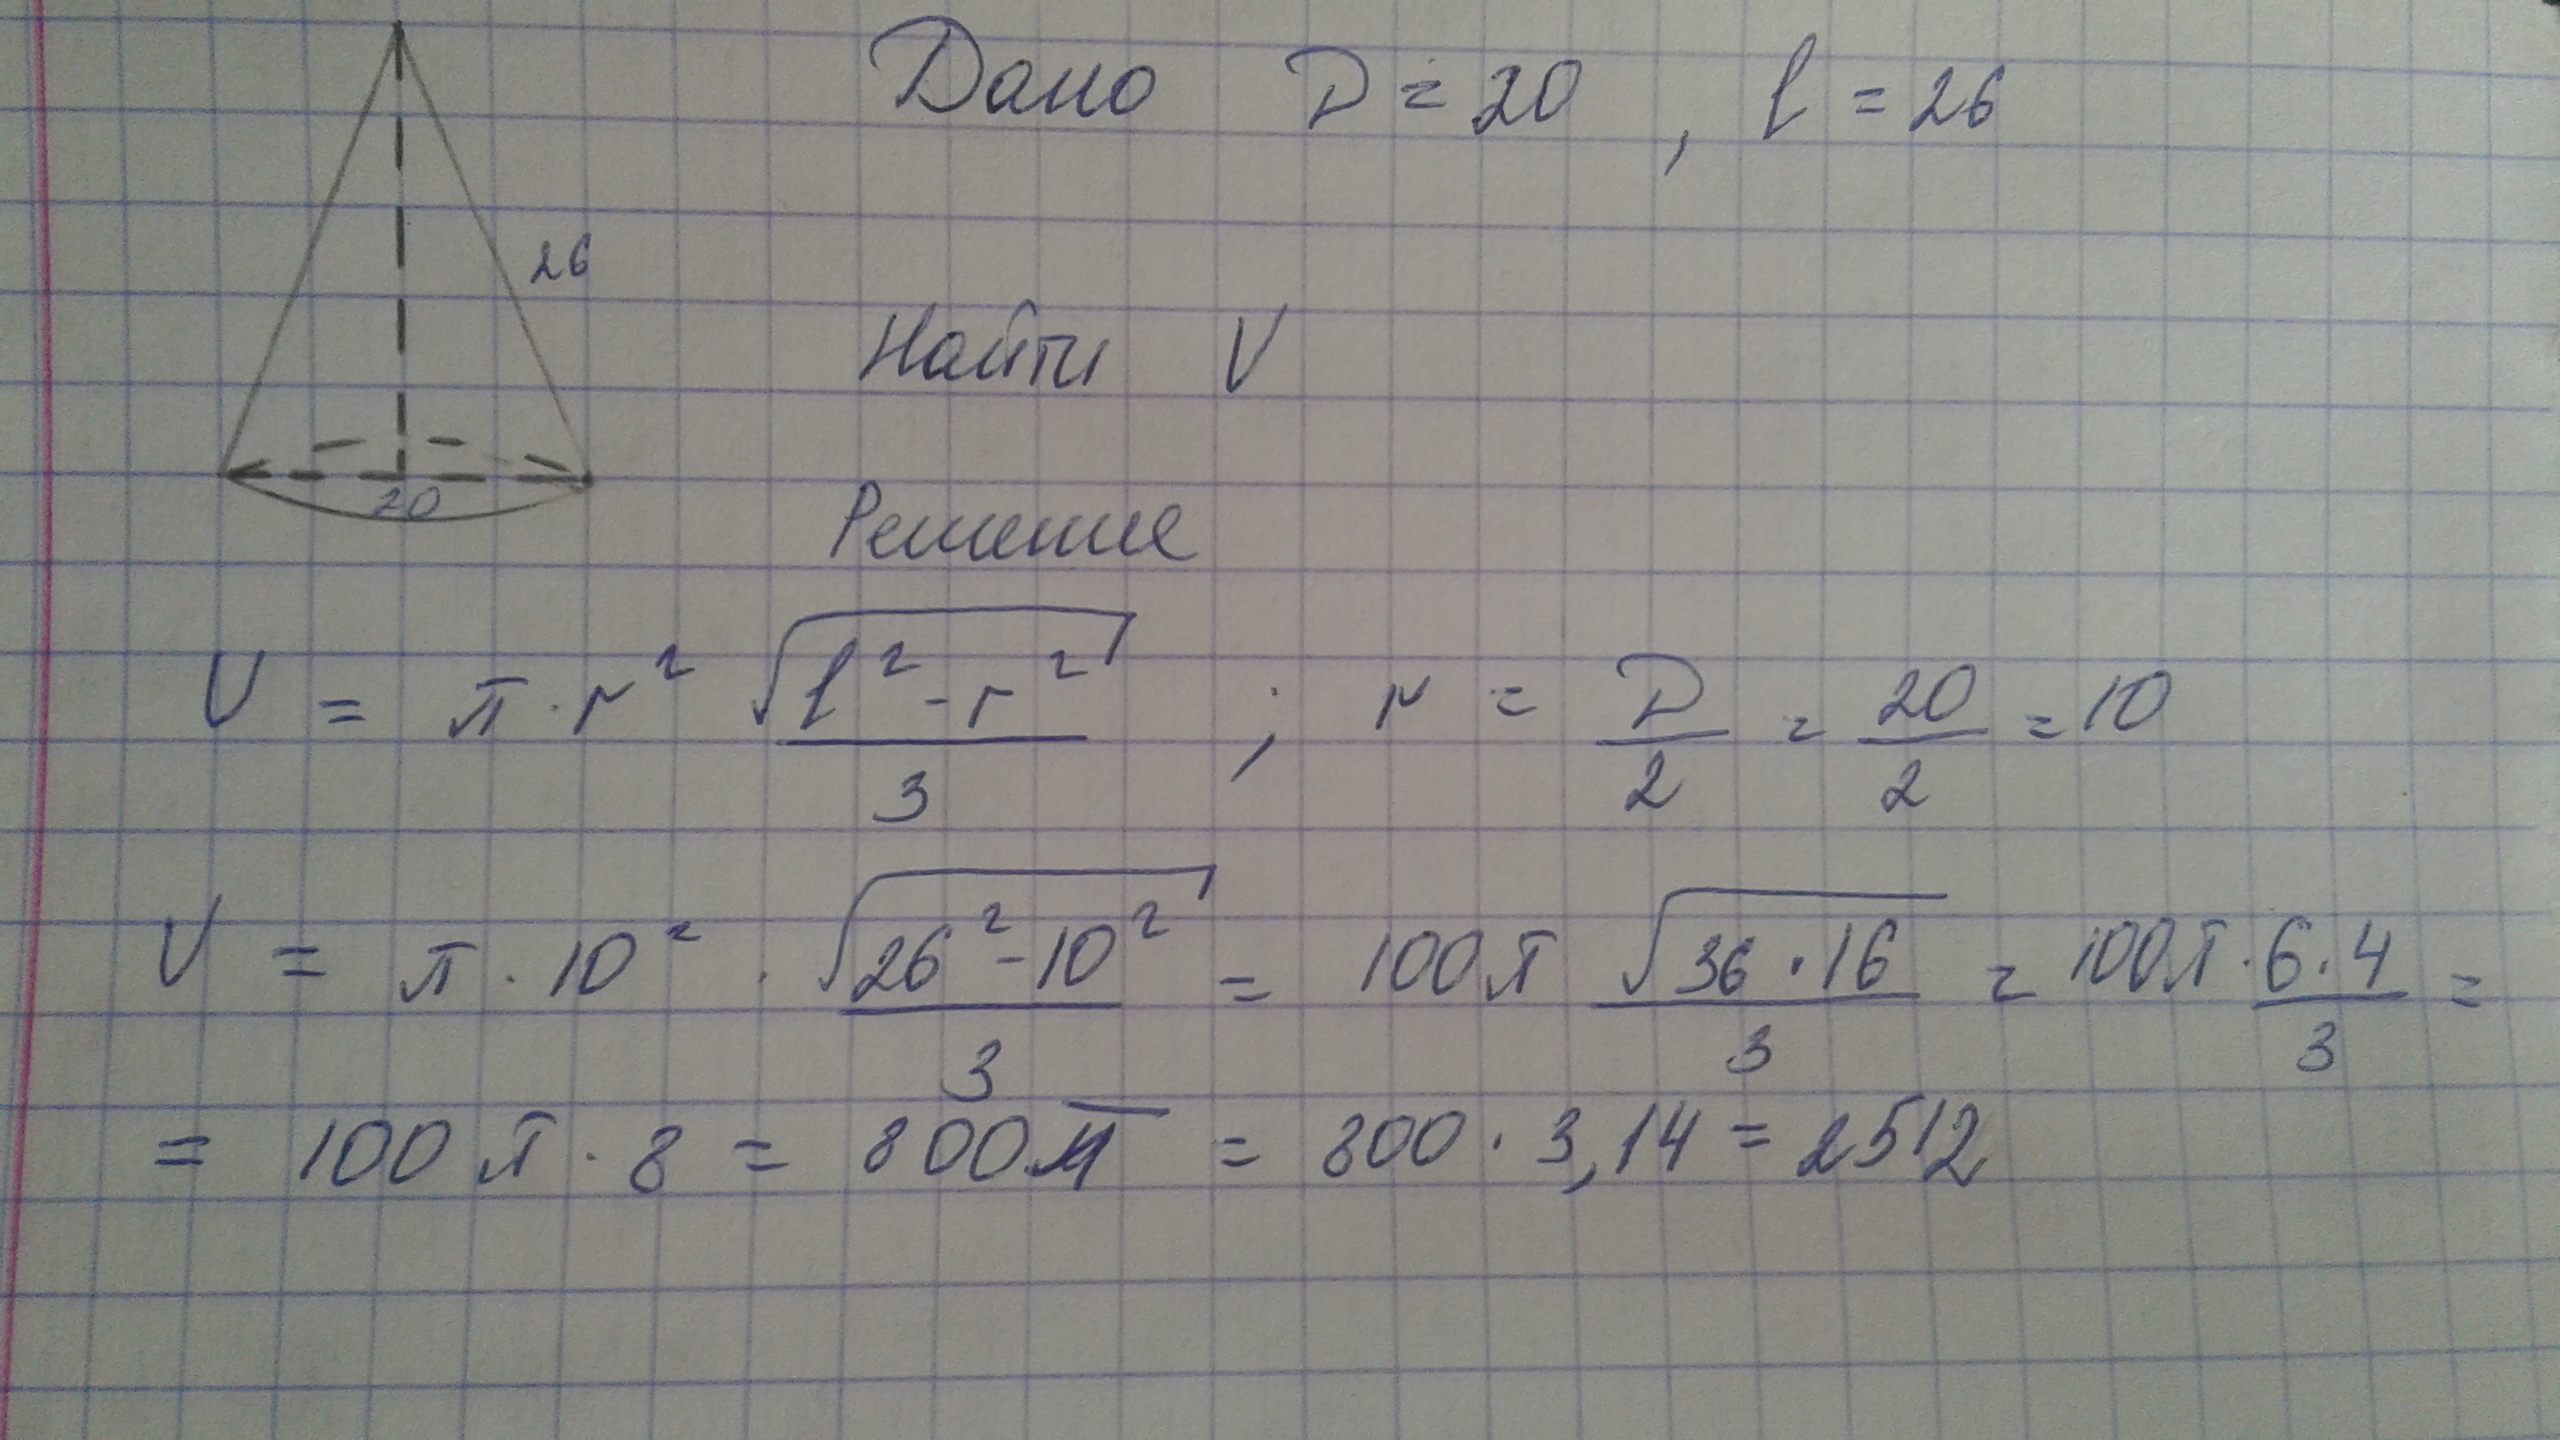 Дано D = 20, l = 26
26
Найти V
20
Решение
V = π · r² √(l² - r²) / 3 ; r = D/2 = 20/2 = 10
V = π · 10² · √(26² - 10²) / 3 = 100π √(36 · 16) / 3 = 100π · 6·4 / 3 =
= 100π · 8 = 800π = 800 · 3,14 = 2512